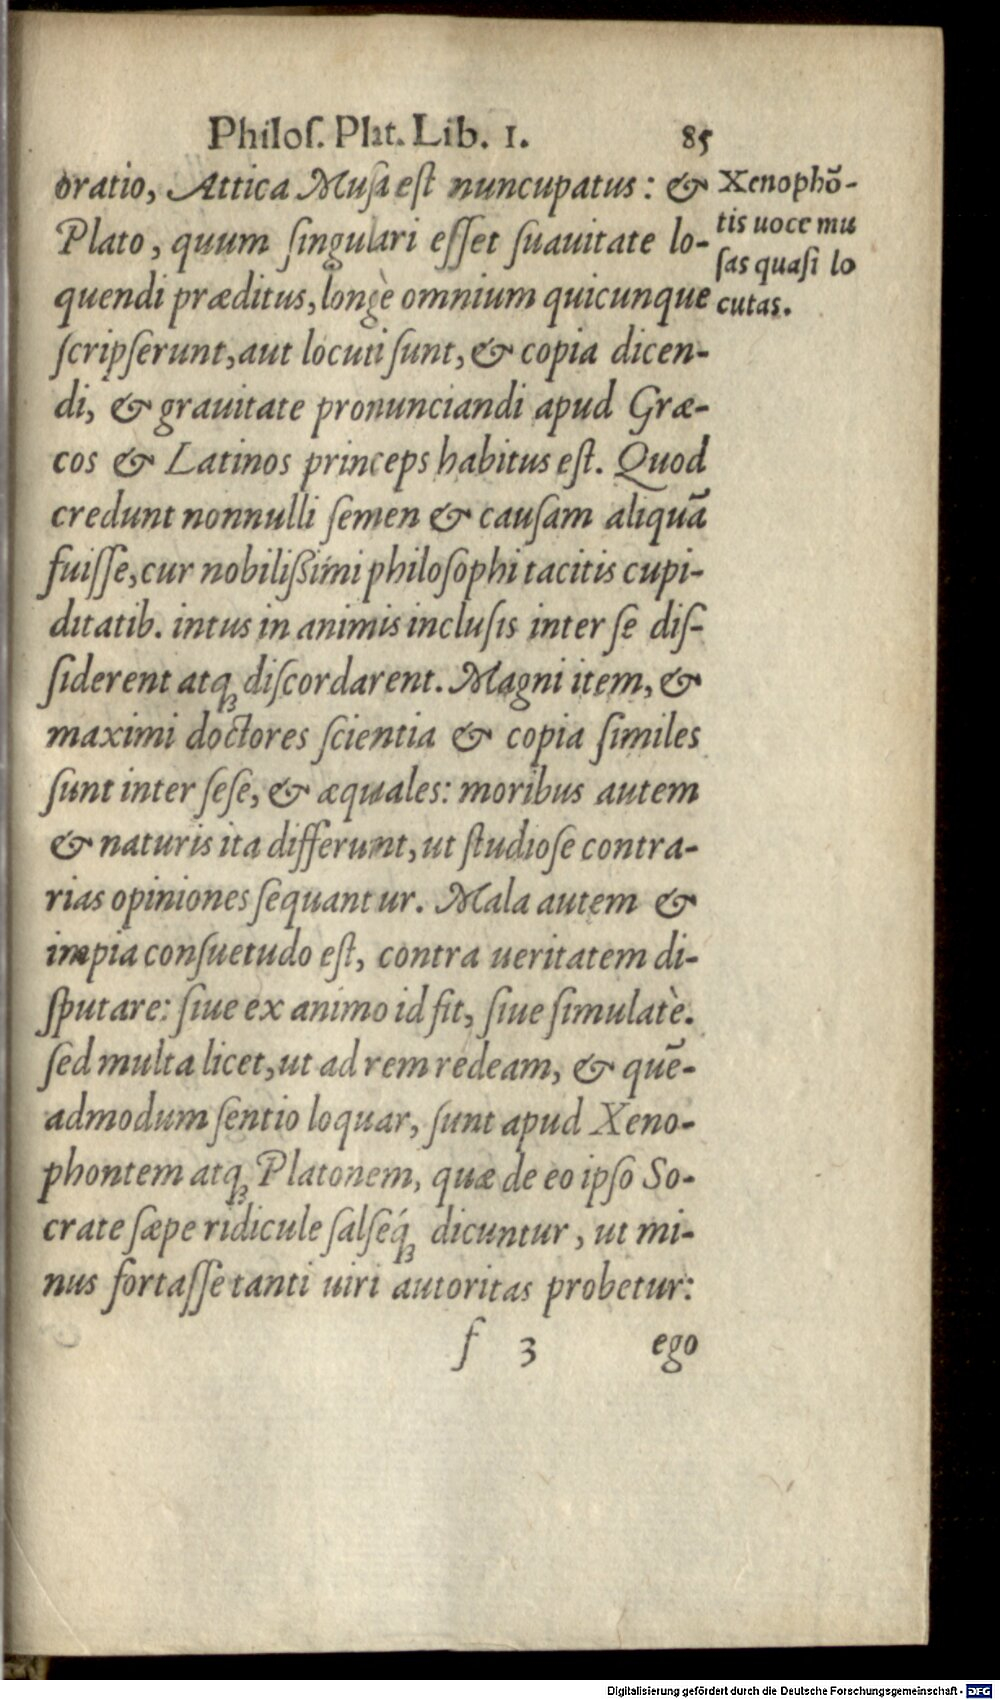 Philoſ. Plat. Lib. 1. 85
oratio, Attica Muſa eſt nuncupatus: &
Plato, quum ſingulari eſſet ſuauitate lo-
quendi præditus, longè omnium quicunque
ſcripſerunt, aut locuti ſunt, & copia dicen-
di, & grauitate pronunciandi apud Græ-
cos & Latinos princeps habitus eſt. Quod
credunt nonnulli ſemen & cauſam aliquã
fuiſſe, cur nobilißimi philoſophi tacitis cupi-
ditatib. intus in animis incluſis inter ſe diſ-
ſiderent atq́; diſcordarent. Magni item, &
maximi doctores ſcientia & copia ſimiles
ſunt inter ſeſe, & æquales: moribus autem
& naturis ita differunt, ut ſtudioſe contra-
rias opiniones ſequantur. Mala autem &
impia conſuetudo eſt, contra ueritatem di-
ſputare: ſiue ex animo id fit, ſiue ſimulatè.
ſed multa licet, ut ad rem redeam, & quẽ-
admodum ſentio loquar, ſunt apud Xeno-
phontem atq; Platonem, quæ de eo ipſo So-
crate ſæpe ridicule ſalſeq́; dicuntur, ut mi-
nus fortaſſe tanti uiri autoritas probetur:
f 3 ego
Xenophõ-
tis uoce mu
ſas quaſi lo
cutas.
Digitalisierung gefördert durch die Deutsche Forschungsgemeinschaft - DFG